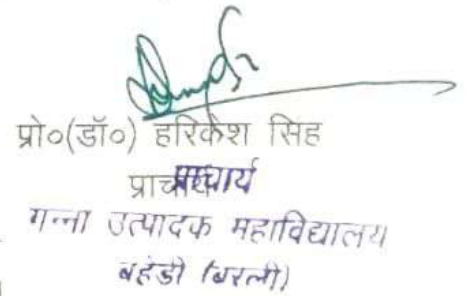 प्रो०(डॉ०) हरिकेश सिंह
प्राचार्य
गन्ना उत्पादक महाविद्यालय
बहेडी (बरेली)